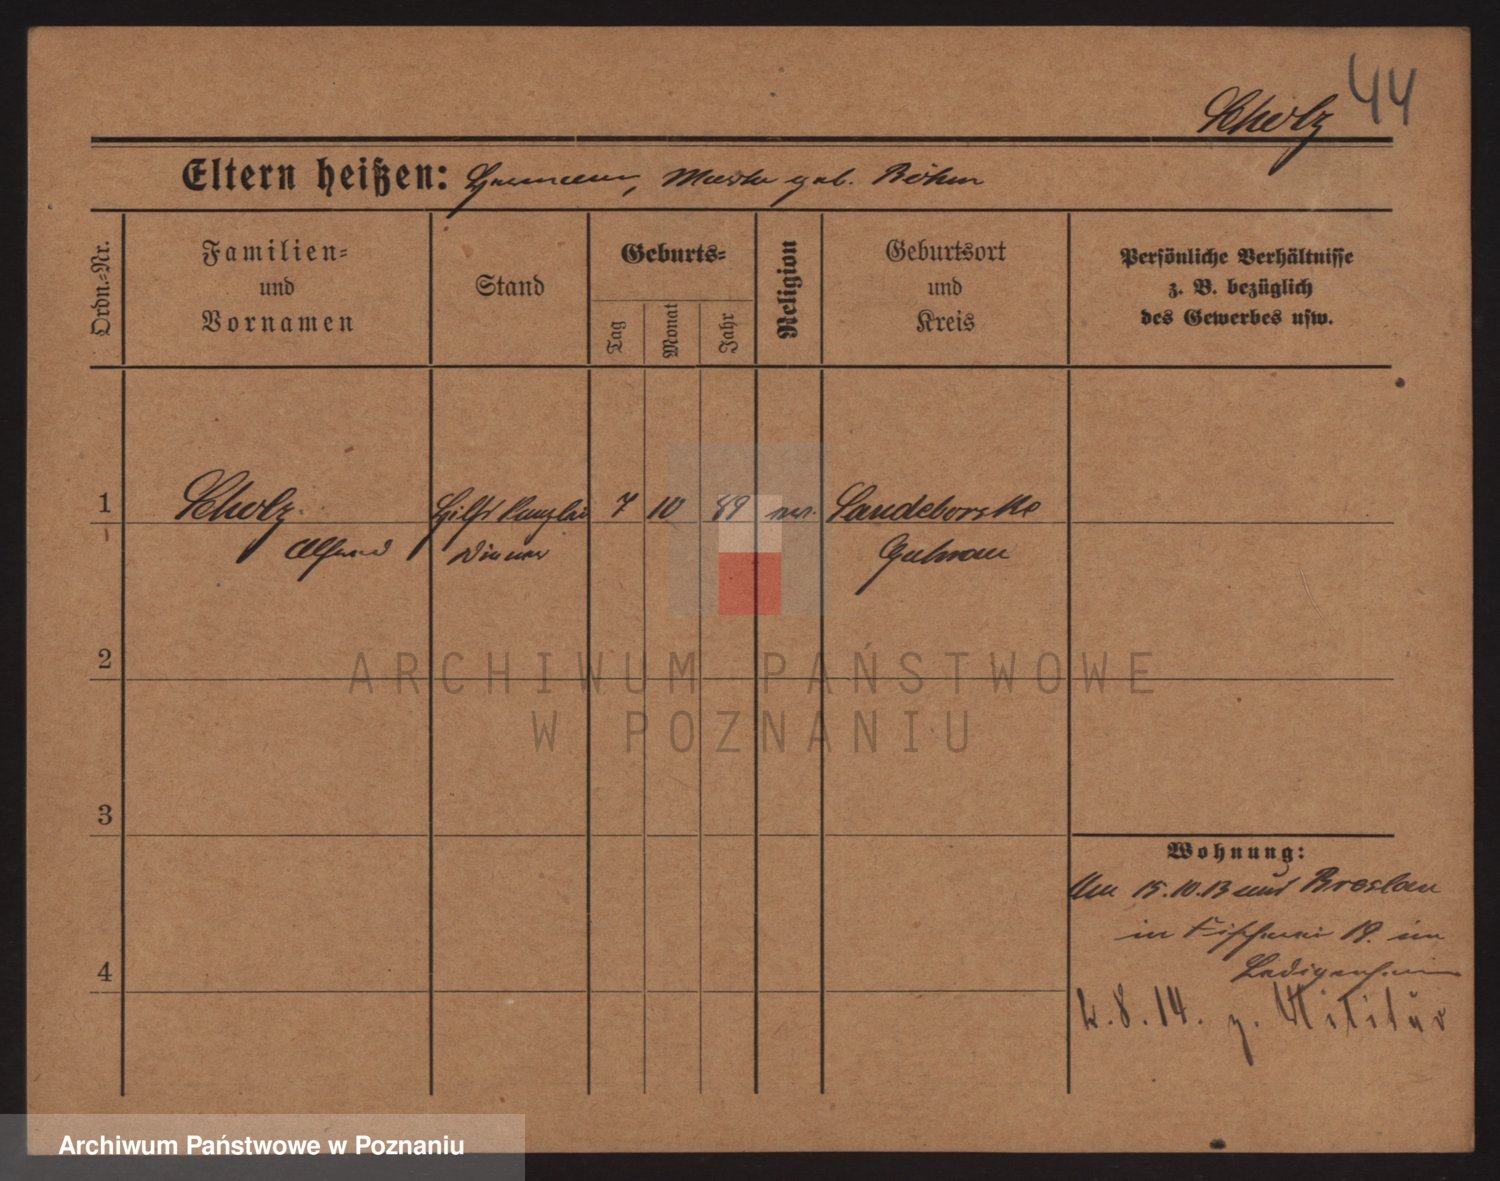 44
Scholz
Eltern heißen: Hermann, Marta geb. Böhm
Ordn.-Nr.
Familien-
und
Vornamen
Stand
Geburts-
Tag
Monat
Jahr
Religion
Geburtsort
und
Kreis
Persönliche Verhältnisse
z. B. bezüglich
des Gewerbes usw.
1
Scholz
Alfred
Hilfs Kanzlei
Diener
7
10
89
ev.
Sandeborske
Guhrau
2
ARCHIWUM PAŃSTWOWE
W POZNANIU
3
Wohnung:
Am 15.10.13 aus Breslau
in Fischerei 19. im
Ledigenheim
4
8.14. z. Militär
Archiwum Państwowe w Poznaniu